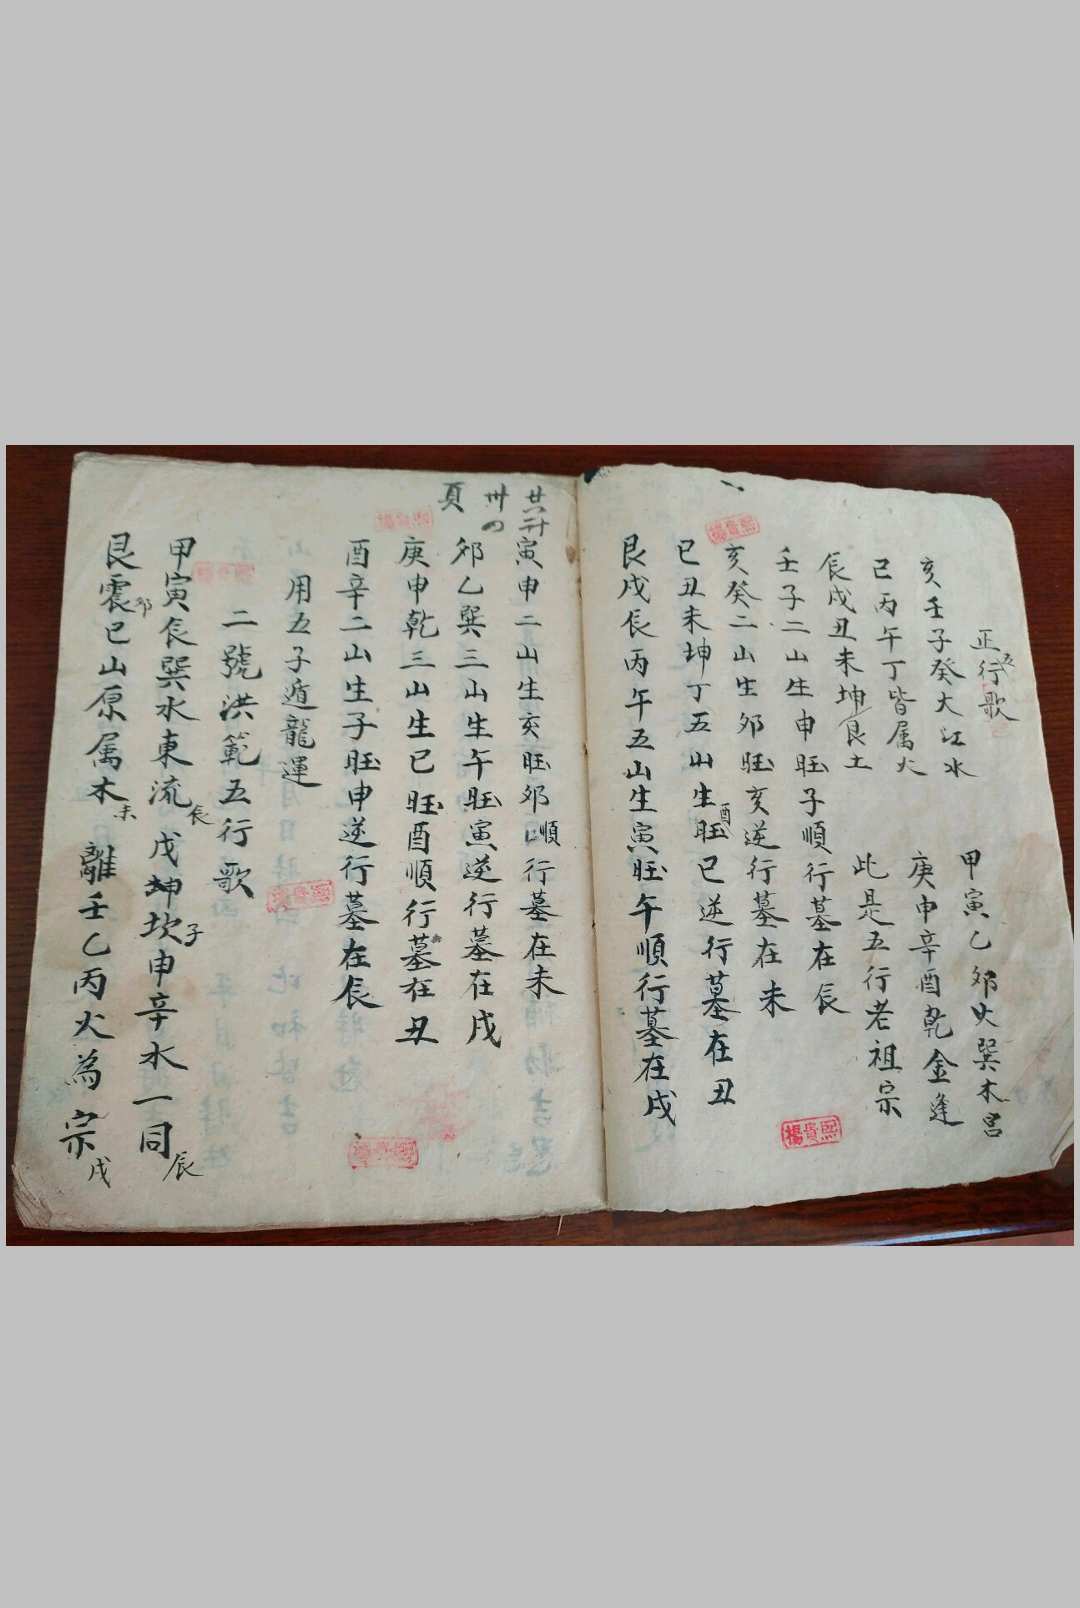 正五行歌
亥壬子癸大江水　甲寅乙夘火巽木宫
己丙午丁皆属火　庚申辛酉乾金逢
辰戌丑未坤艮土　此是五行老祖宗
壬子二山生申旺子順行墓在辰
亥癸二山生夘旺亥逆行墓在未
己丑未坤丁五山生酉旺巳逆行墓在丑
艮戌辰丙午五山生寅旺午順行墓在戌
寅申二山生亥旺夘順行墓在未
夘乙巽三山生午旺寅逆行墓在戌
庚申乾三山生巳旺酉順行墓在丑
酉辛二山生子旺申逆行墓在辰
用五子遁龍運
二號洪範五行歌
甲寅辰巽水東流辰　戊坤坎子申辛水一同辰
艮震夘巳山原属木未　離壬乙丙火為宗戌
頁
楊貴熙
楊貴熙